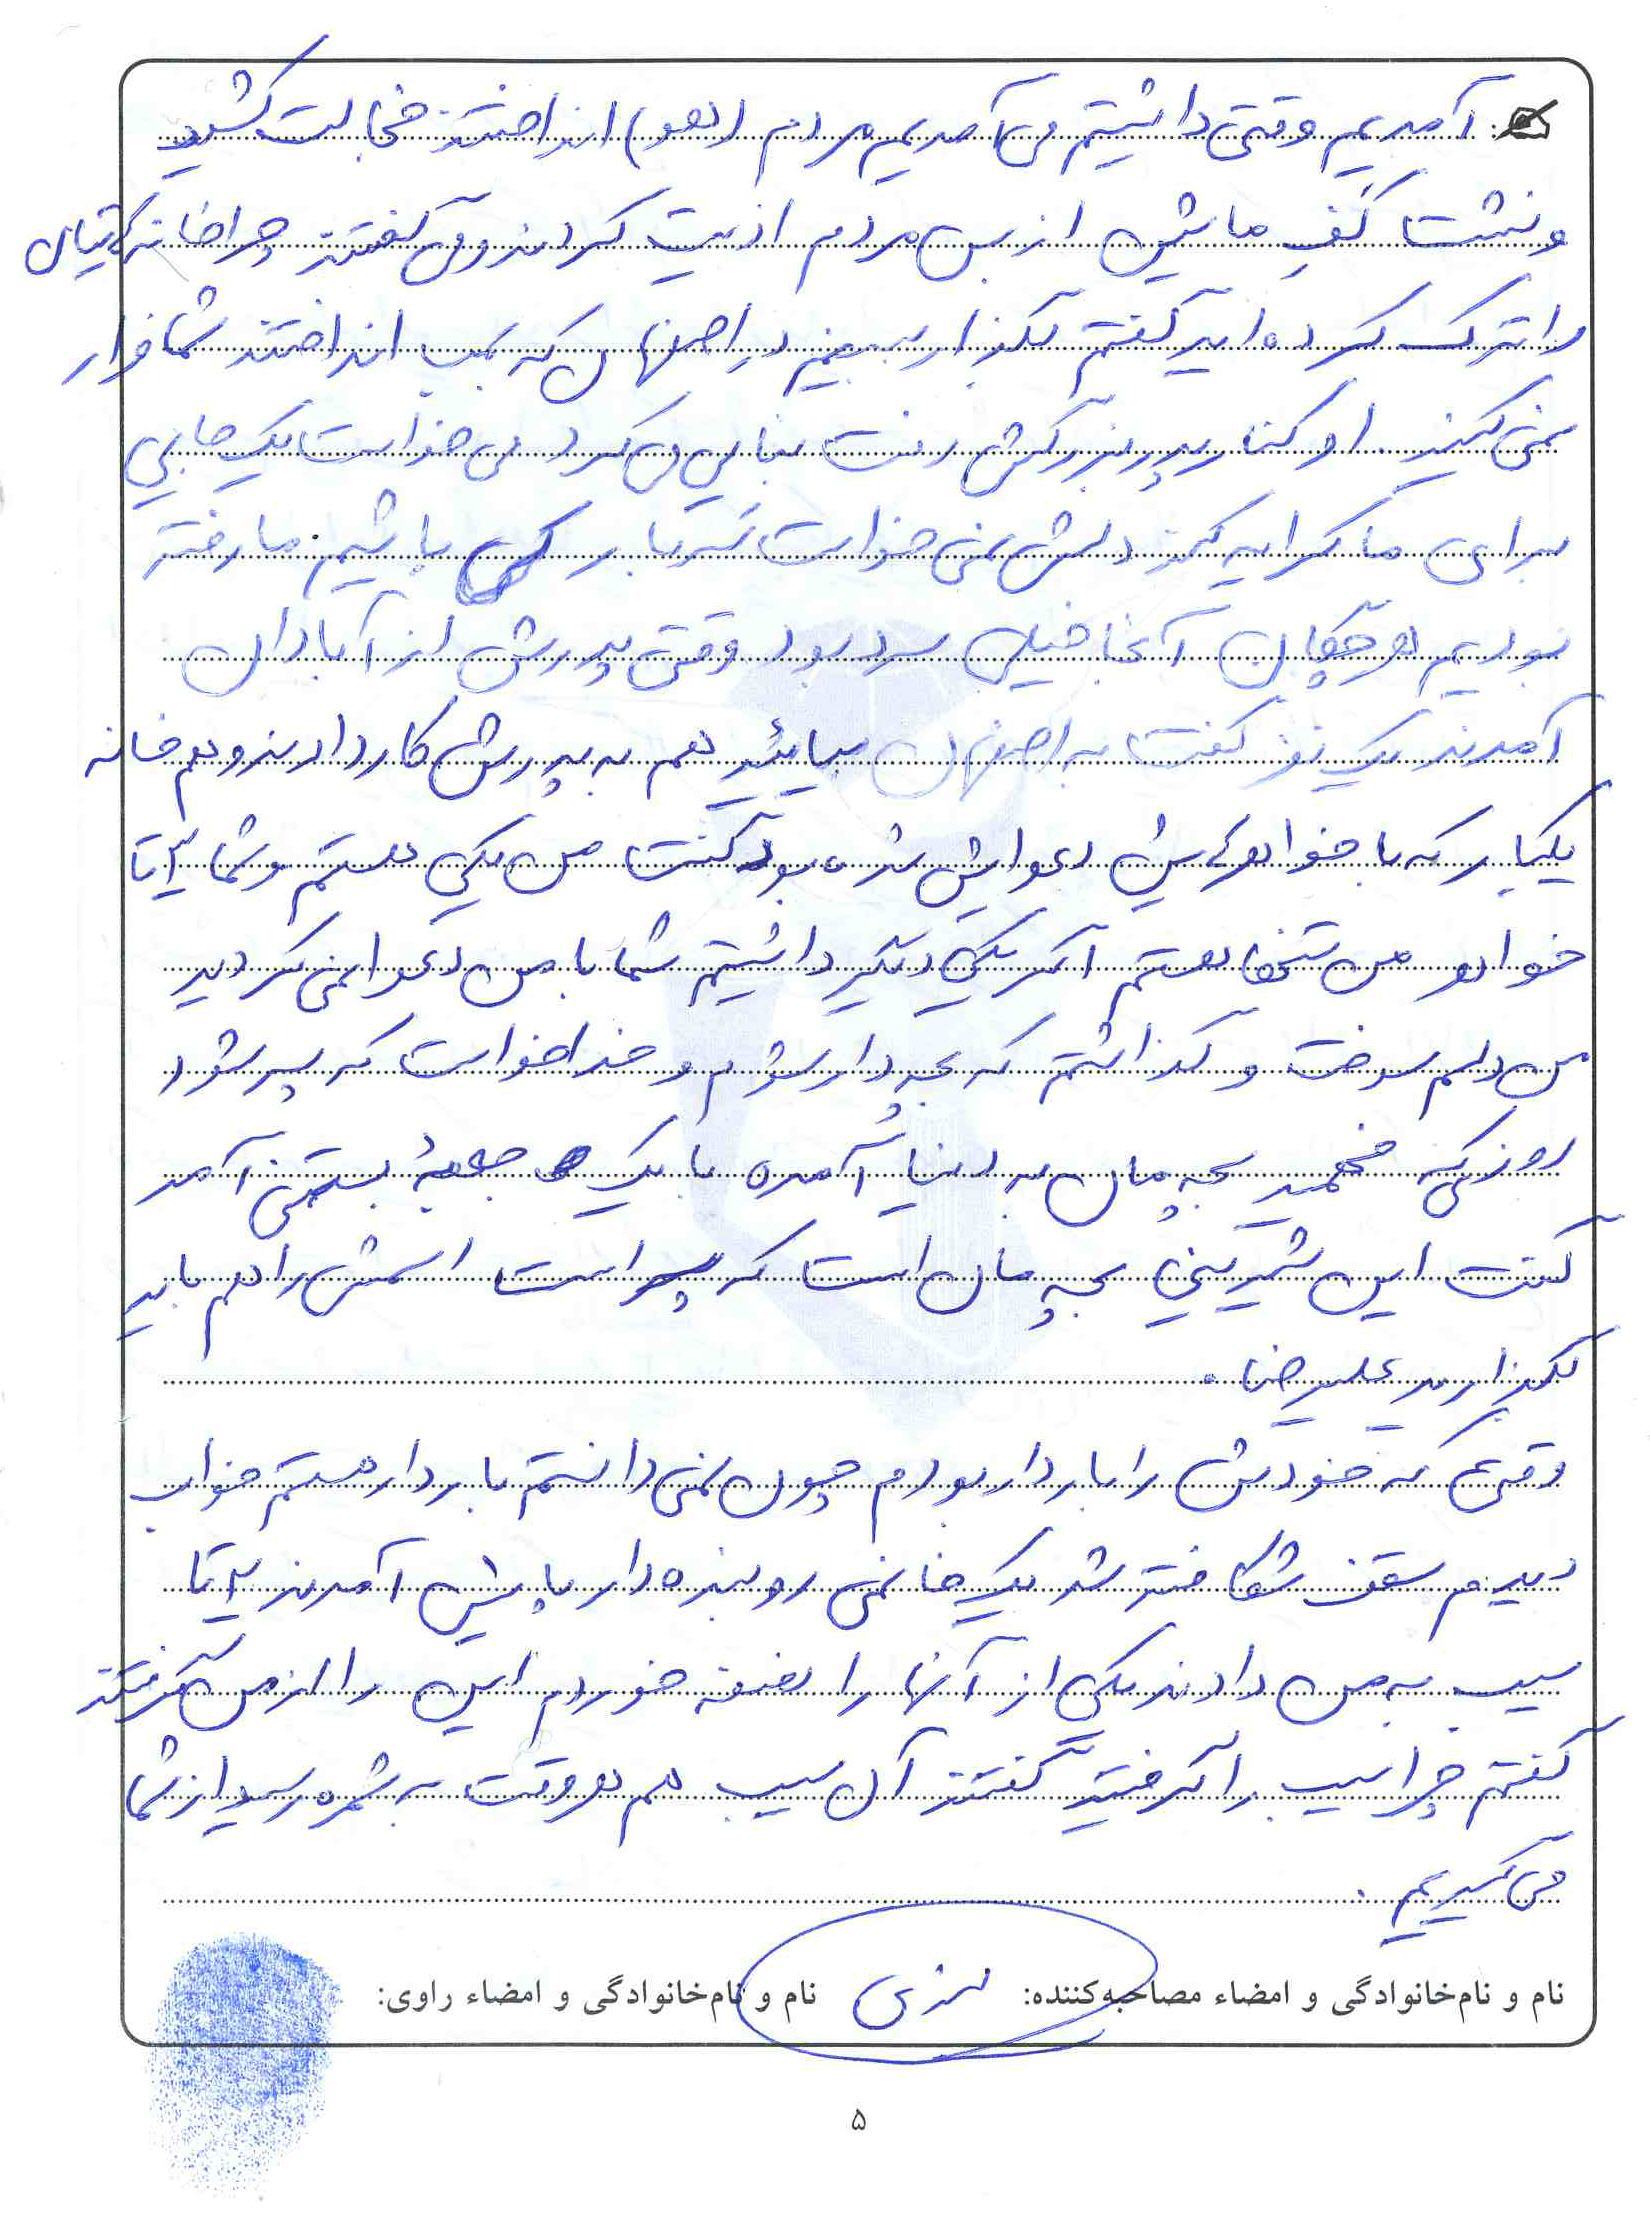 آمدیم وقتی داشتیم می آمدیم مردم (هو) انداختند خجالت کشید
و نشست کفِ ماشین از بس مردم اذیت کردند و می گفتند چرا خانه هایتان
را ترک کرده اید گفتم بگذار ببینیم در اصفهان که بمب انداختند شما فرار
نمی کنید. او کنار پدربزرگش رفت بنایی می کرد می خواست یک جایی
برای ما کرایه کند دلش نمی خواست سربار کسی باشیم. ما رفته
بودیم هرچگان آنجا خیلی سرد بود وقتی پدرش از آبادان
آمدند یک نفر گفت به اصفهان بیائید هم به پدرش کار دادند و هم خانه
یکبار که با خواهرهایش دعوایش شده بود گفت من یکی هستم و شما ۳ تا
خواهر من تنها هستم اگر یکی دیگر داشتیم شما با من دعوا نمی کردید
من دلم سوخت و گذاشتم که بچه دار شوم و خدا خواست که پسر شود
روزی که فهمید بچه مان به دنیا آمده با یک جعبهٔ بستنی آمد
گفت این شیرینی بچه مان است که پسر است اسمش را هم باید
بگذارید علیرضا.
وقتی که خودش را باردار بودم چون نمی دانستم باردار هستم خواب
دیدم سقف شکافته شد یک خانمی روبنده دار پایش آمدند ۲ تا
سیب به من دادند یکی از آنها را نصفه خوردم این را از من گرفتند
گفتم چرا سیب را گرفتید گفتند آن سیب هم هروقت به ثمره رسید از شما
می گیریم.
نام و نام‌خانوادگی و امضاء مصاحبه‌کننده: نام و نام‌خانوادگی و امضاء راوی:
۵